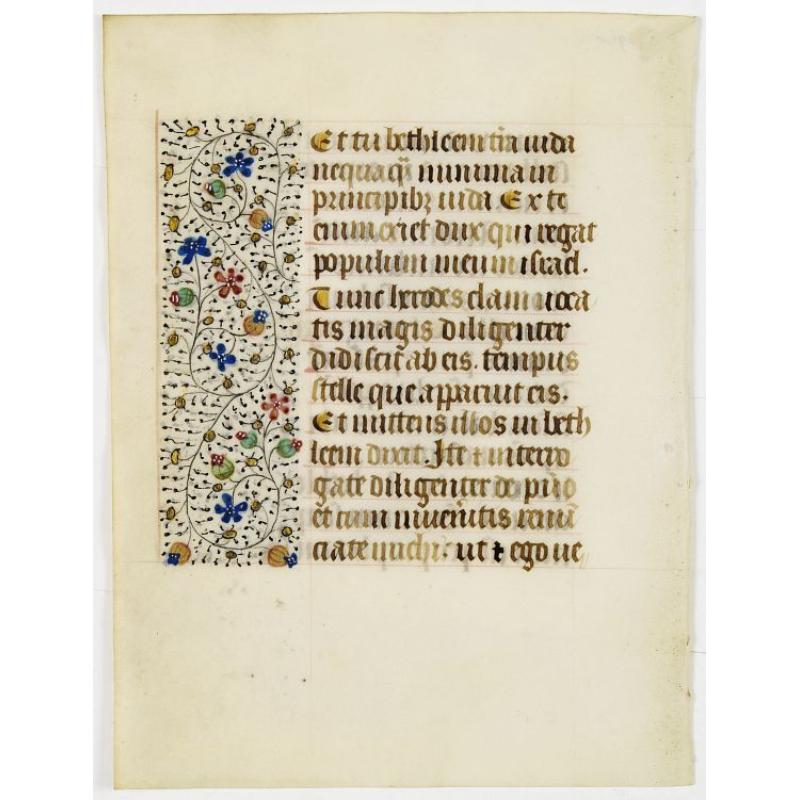 Et tu bethleem tr̄a iuda
nequaq̄ minima in
principibꝫ iuda Ex te
enim exiet dux qui regat
populum meum israel.
Tunc herodes clam voca
tis magis diligenter
didiscit ab eis. tempus
stelle que apparuit eis.
Et mittens illos in beth
leem dixit. Ite ⁊ interro
gate diligenter de pu̅o
et cum inven̄itis renū
ciate michi. ut ⁊ ego ve